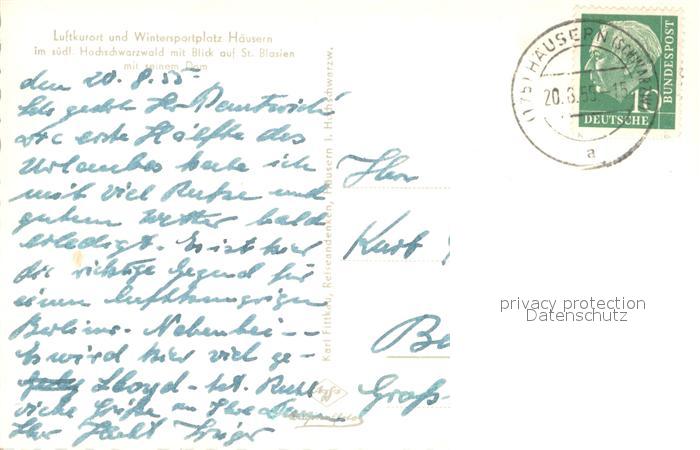 Luftkurort und Wintersportplatz Häusern
im südl. Hochschwarzwald mit Blick auf St. Blasien
mit seinem Dom
den 20.8.55
Sehr geehrter Herr
die erste Hälfte des
Urlaubes habe ich
mit viel Ruhe und
gutem Wetter bald
erledigt. Es ist hier
die richtige Gegend für
einen lufthungrigen
Berliner. Nebenbei --
Es wird hier viel ge-
Lloyd
viele Grüße an Ihre
Ihr
Karl Fittkau, Reiseandenken, Häusern i. Hochschwarzw.
Herr
Kurt
Be
Groß-
(17b) HÄUSERN (SCHWARZW
20.8.55-15
a
10
DEUTSCHE
BUNDESPOST
privacy protection
Datenschutz